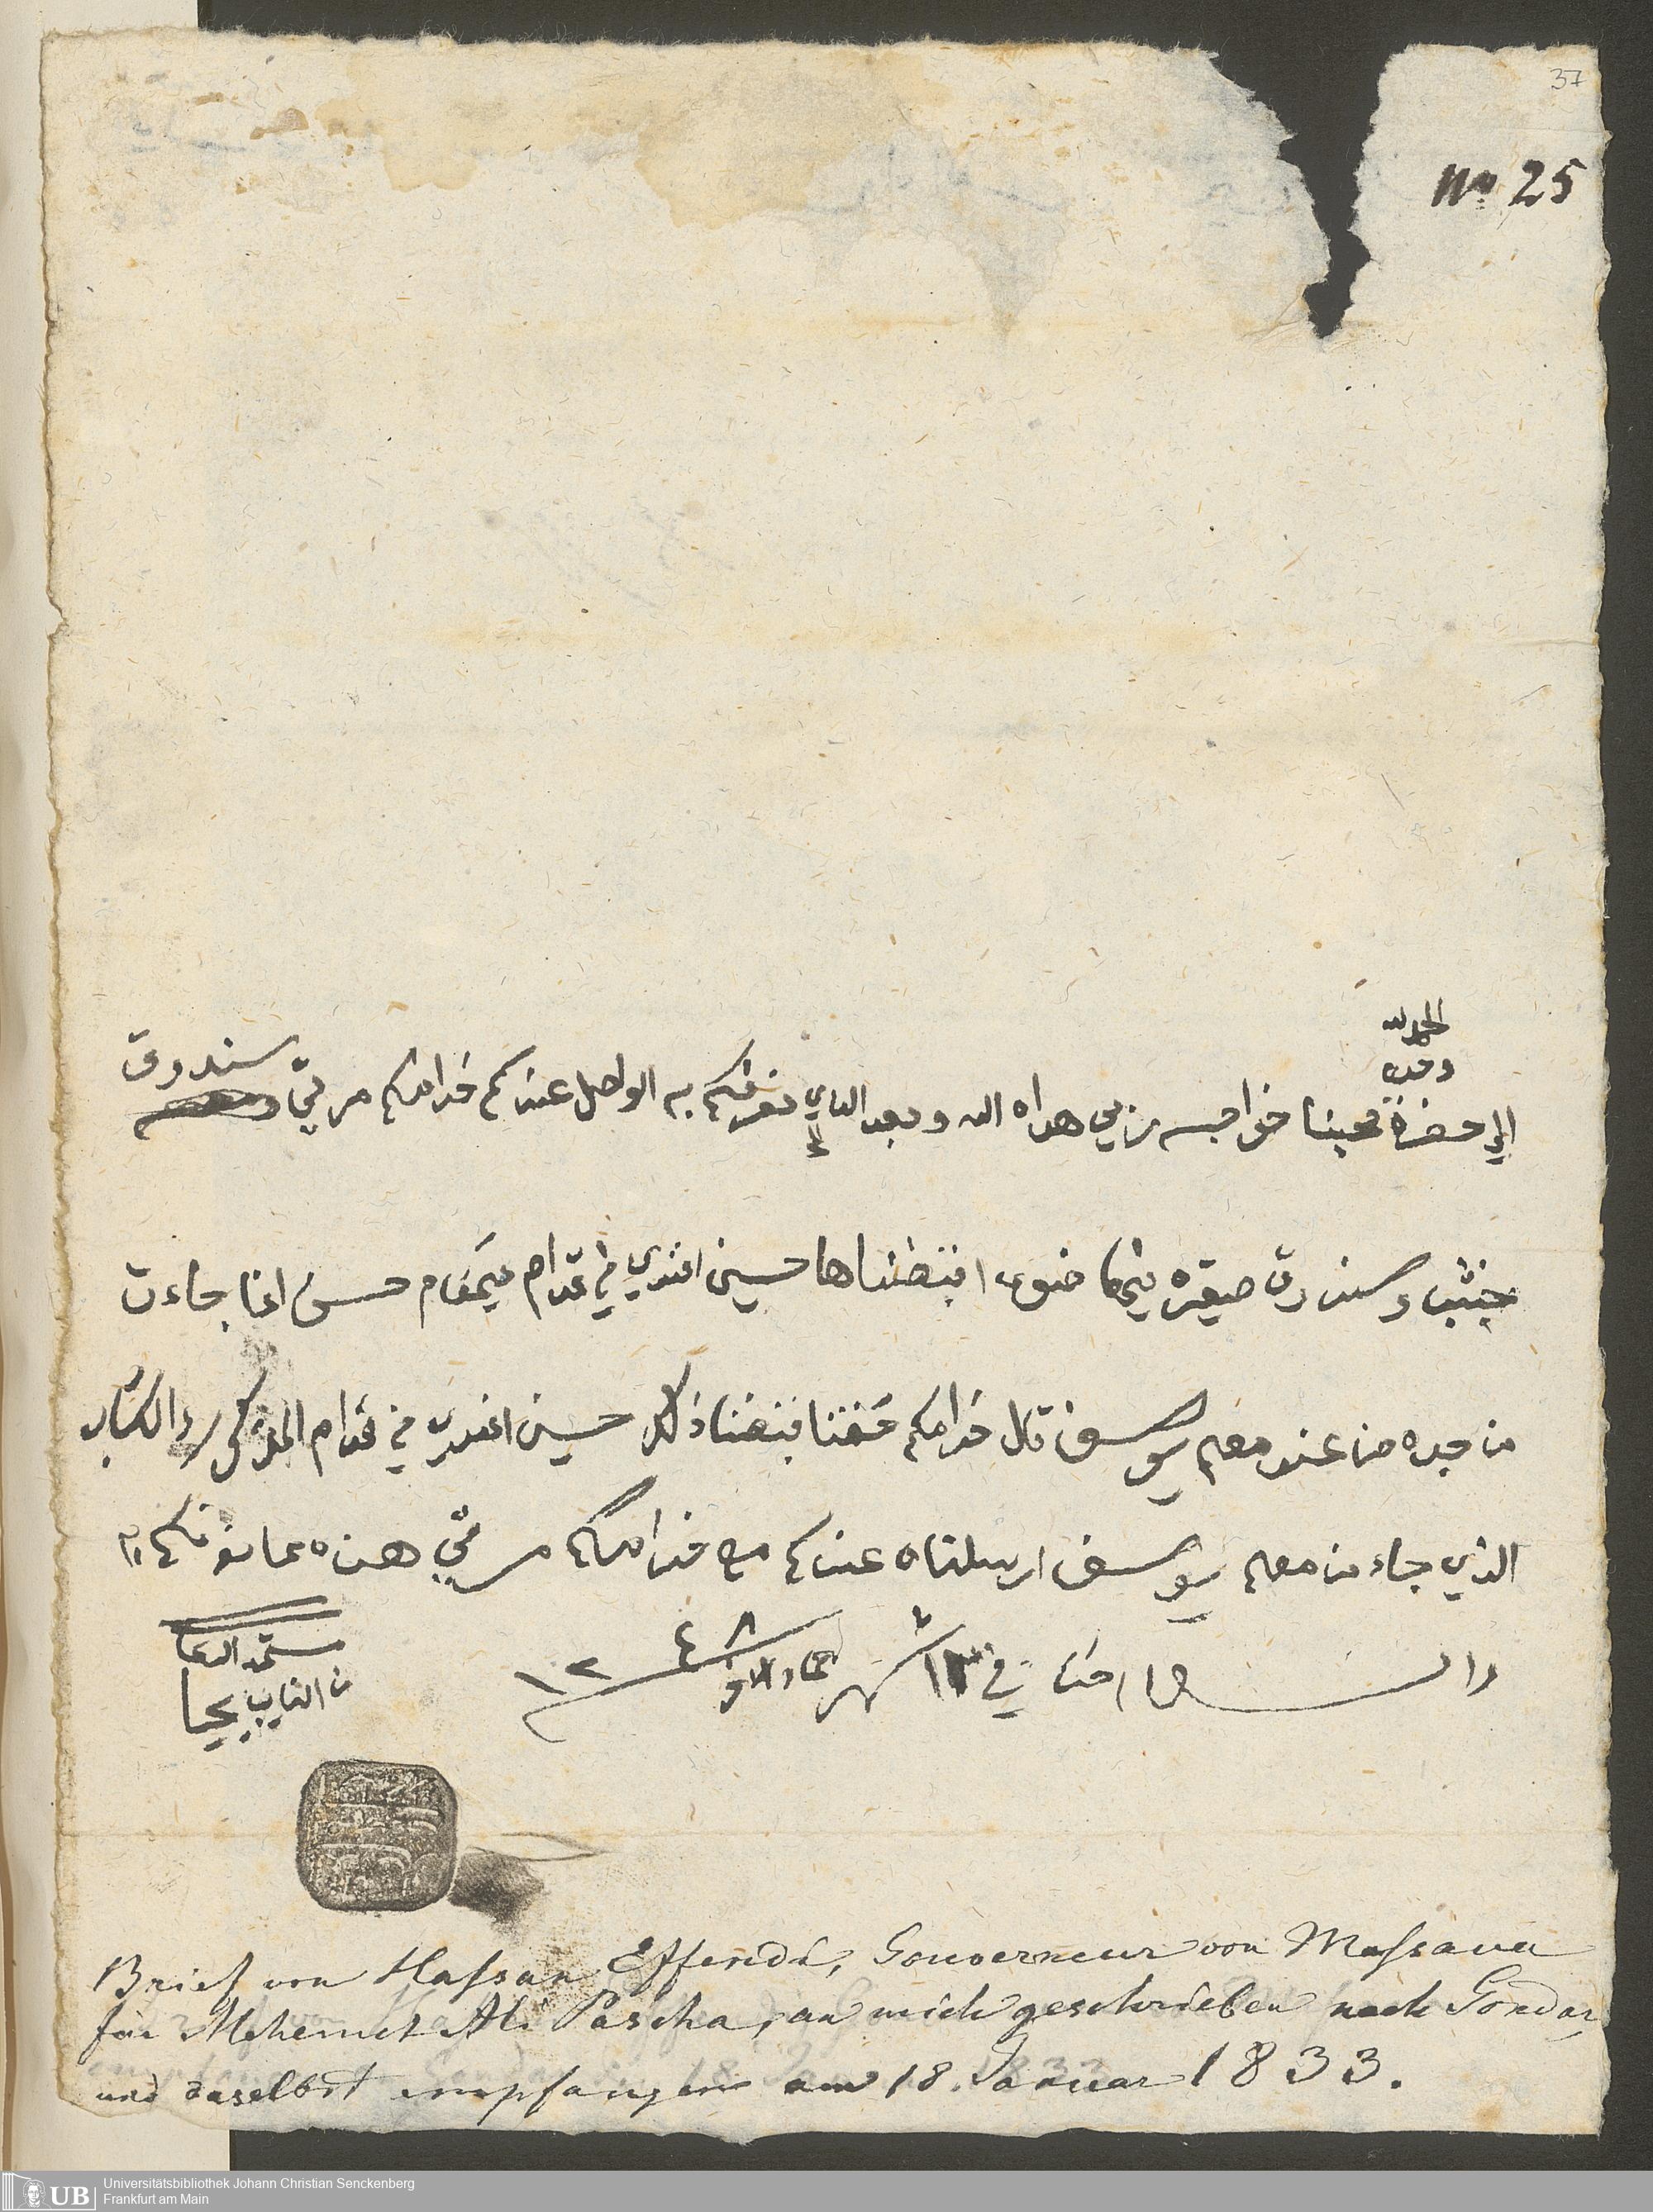 37
No 25
الحمد لله
وحده
سندوق
الي حضرة محبنا خواجه ربيي هداه الله وبعد الذي نعرفكم به الواصل عندكم خدامكم مرقي
خشب وسندوق صغيره اقبضناها حسين افندي في قدام حسن اغا جاءت
من جده من عند معلم يوسف قال خدامكم قبضنا ذلك حسين افندي في قدام المذكور والكتاب
الذي جاء من معلم يوسف ارسلناه عندكم مع خدامكم مرقي هذه ما نعرفكم به
والسلام ختام في ١٣ شهر جماد الاخر ١٢٤٨
مستمد الدعا
من النايب يحيا
Brief von Hassan Effendi, Gouverneur von Massaua
für Mehemet Ali Pascha, an mich geschrieben nach Gondar,
und daselbst empfangen am 18. Januar 1833.
UB Universitätsbibliothek Johann Christian Senckenberg
Frankfurt am Main